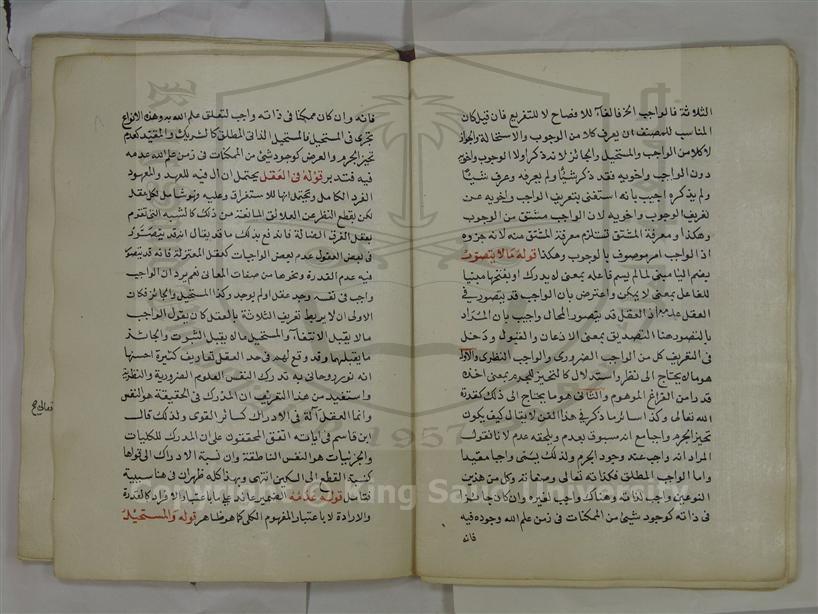 الثلاثة فالواجب الخ فالفآء للافصاح لا للتفريع فان قيل كان
المناسب للمصنف ان يعرف كلا من الوجوب والاستحالة والجواز
لا كلا من الواجب والمستحيل والجائز لانه ذكر اولا الوجوب واخويه
دون الواجب واخويه فقد ذكر شيأ ولم يعرفه وعرف شيئا
ولم يذكره اجيب بانه استغنى بتعريف الواجب واخويه عن
تعريف الوجوب واخويه لان الواجب مشتق من الوجوب
وهكذا ومعرفة المشتق تستلزم معرفة المشتق منه لانه جزوه
اذ الواجب امر موصوف بالوجوب وهكذا قوله مالا يتصور
بضم اليا مبنى لما لم يسم فاعله بمعنى لا يدرك او بفتحها مبنيا
للفاعل بمعنى لا يمكن واعترض بان الواجب قد يتصور في
العقل عدمه اذ العقل قد يتصور المحال واجيب بان المراد
بالتصور هنا التصديق بمعنى الاذعان والقبول ودخل
فى التعريف كل من الواجب الضرورى والواجب النظرى والاول
هو مالا يحتاج الى نظر واستدلال كالتحيز للجرم بمعنى اخذه
قدرا من الفراغ الموهوم والثانى هو ما يحتاج الى ذلك كقدرة
الله تعالى وكذا سائر ما ذكر في هذا الفن لا يقال كيف يكون
تحيز الجرم واجبا مع انه مسبوق بعدم ويلحقه عدم لانا نقول
المراد انه واجب عند وجود الجرم ولذلك يسمى واجبا مقيدا
واما الواجب المطلق فكذاته تعالى وصفاته وكل من هذين
النوعين واجب لذاته وهناك واجب لغيره وان كان جائزا
فى ذاته كوجود شيئ من الممكنات فى زمن علم الله وجوده فيه
فانه
فانه وان كان ممكنا فى ذاته واجب لتعلق علم الله به وهذه الانواع
تجرى فى المستحيل فالمستحيل الذاتى المطلق كالشريك والمقيد كعدم
تحيز الجرم والعرضى كوجود شيئ من الممكنات فى زمن علم الله عدمه
فيه فتدبر قوله فى العقل يحتمل ان ال فيه للعهد والمعهود
الفرد الكامل ويحتمل انها للاستغراق وعليه فهو شامل لكل عقل
لكن بقطع النظر عن العلائق المانعة من ذلك كالشبه التى تقوم
بعقل الفرق الضالة فاندفع بذلك ما قد يقال انه قد يتصور
فى بعض العقول عدم بعض الواجبات كعقل المعتزلة فانه قد يتصور
فيه عدم القدرة ونحوها من صفات المعانى نعم يرد ان الواجب
واجب فى نفسه وجد عقل او لم يوجد وكذا المستحيل والجائز فكان
الاولى ان لا يربط تعريف الثلاثة بالعقل كان يقول الواجب
مالا يقبل الانتفاء والمستحيل مالا يقبل الثبوت والجائز
ما يقبلهما وقد وقع لهم فى حد العقل تعاريف كثيرة احسنها
انه نور روحانى به تدرك النفس العلوم الضرورية والنظرية
واستفيد من هذا التعريف ان المدرك فى الحقيقة هو النفس
وانما العقل آلة فى الادراك كسائر القوى ولذلك قال
ابن قاسم فى اياته اتفق المحققون على ان المدرك للكليات
والجزئيات هو النفس الناطقة وان نسبة الادراك الى قواها
كنسبة القطع الى السكين انتهى وبهذا كله ظهر ان فى هنا سببية
فتامل قوله عدمه الضمير عائد على ما باعتبار الافراد كالقدرة
والارادة لا باعتبار المفهوم الكلى كما هو ظاهر قوله والمستحيل
Copyright © King Saud University
1957